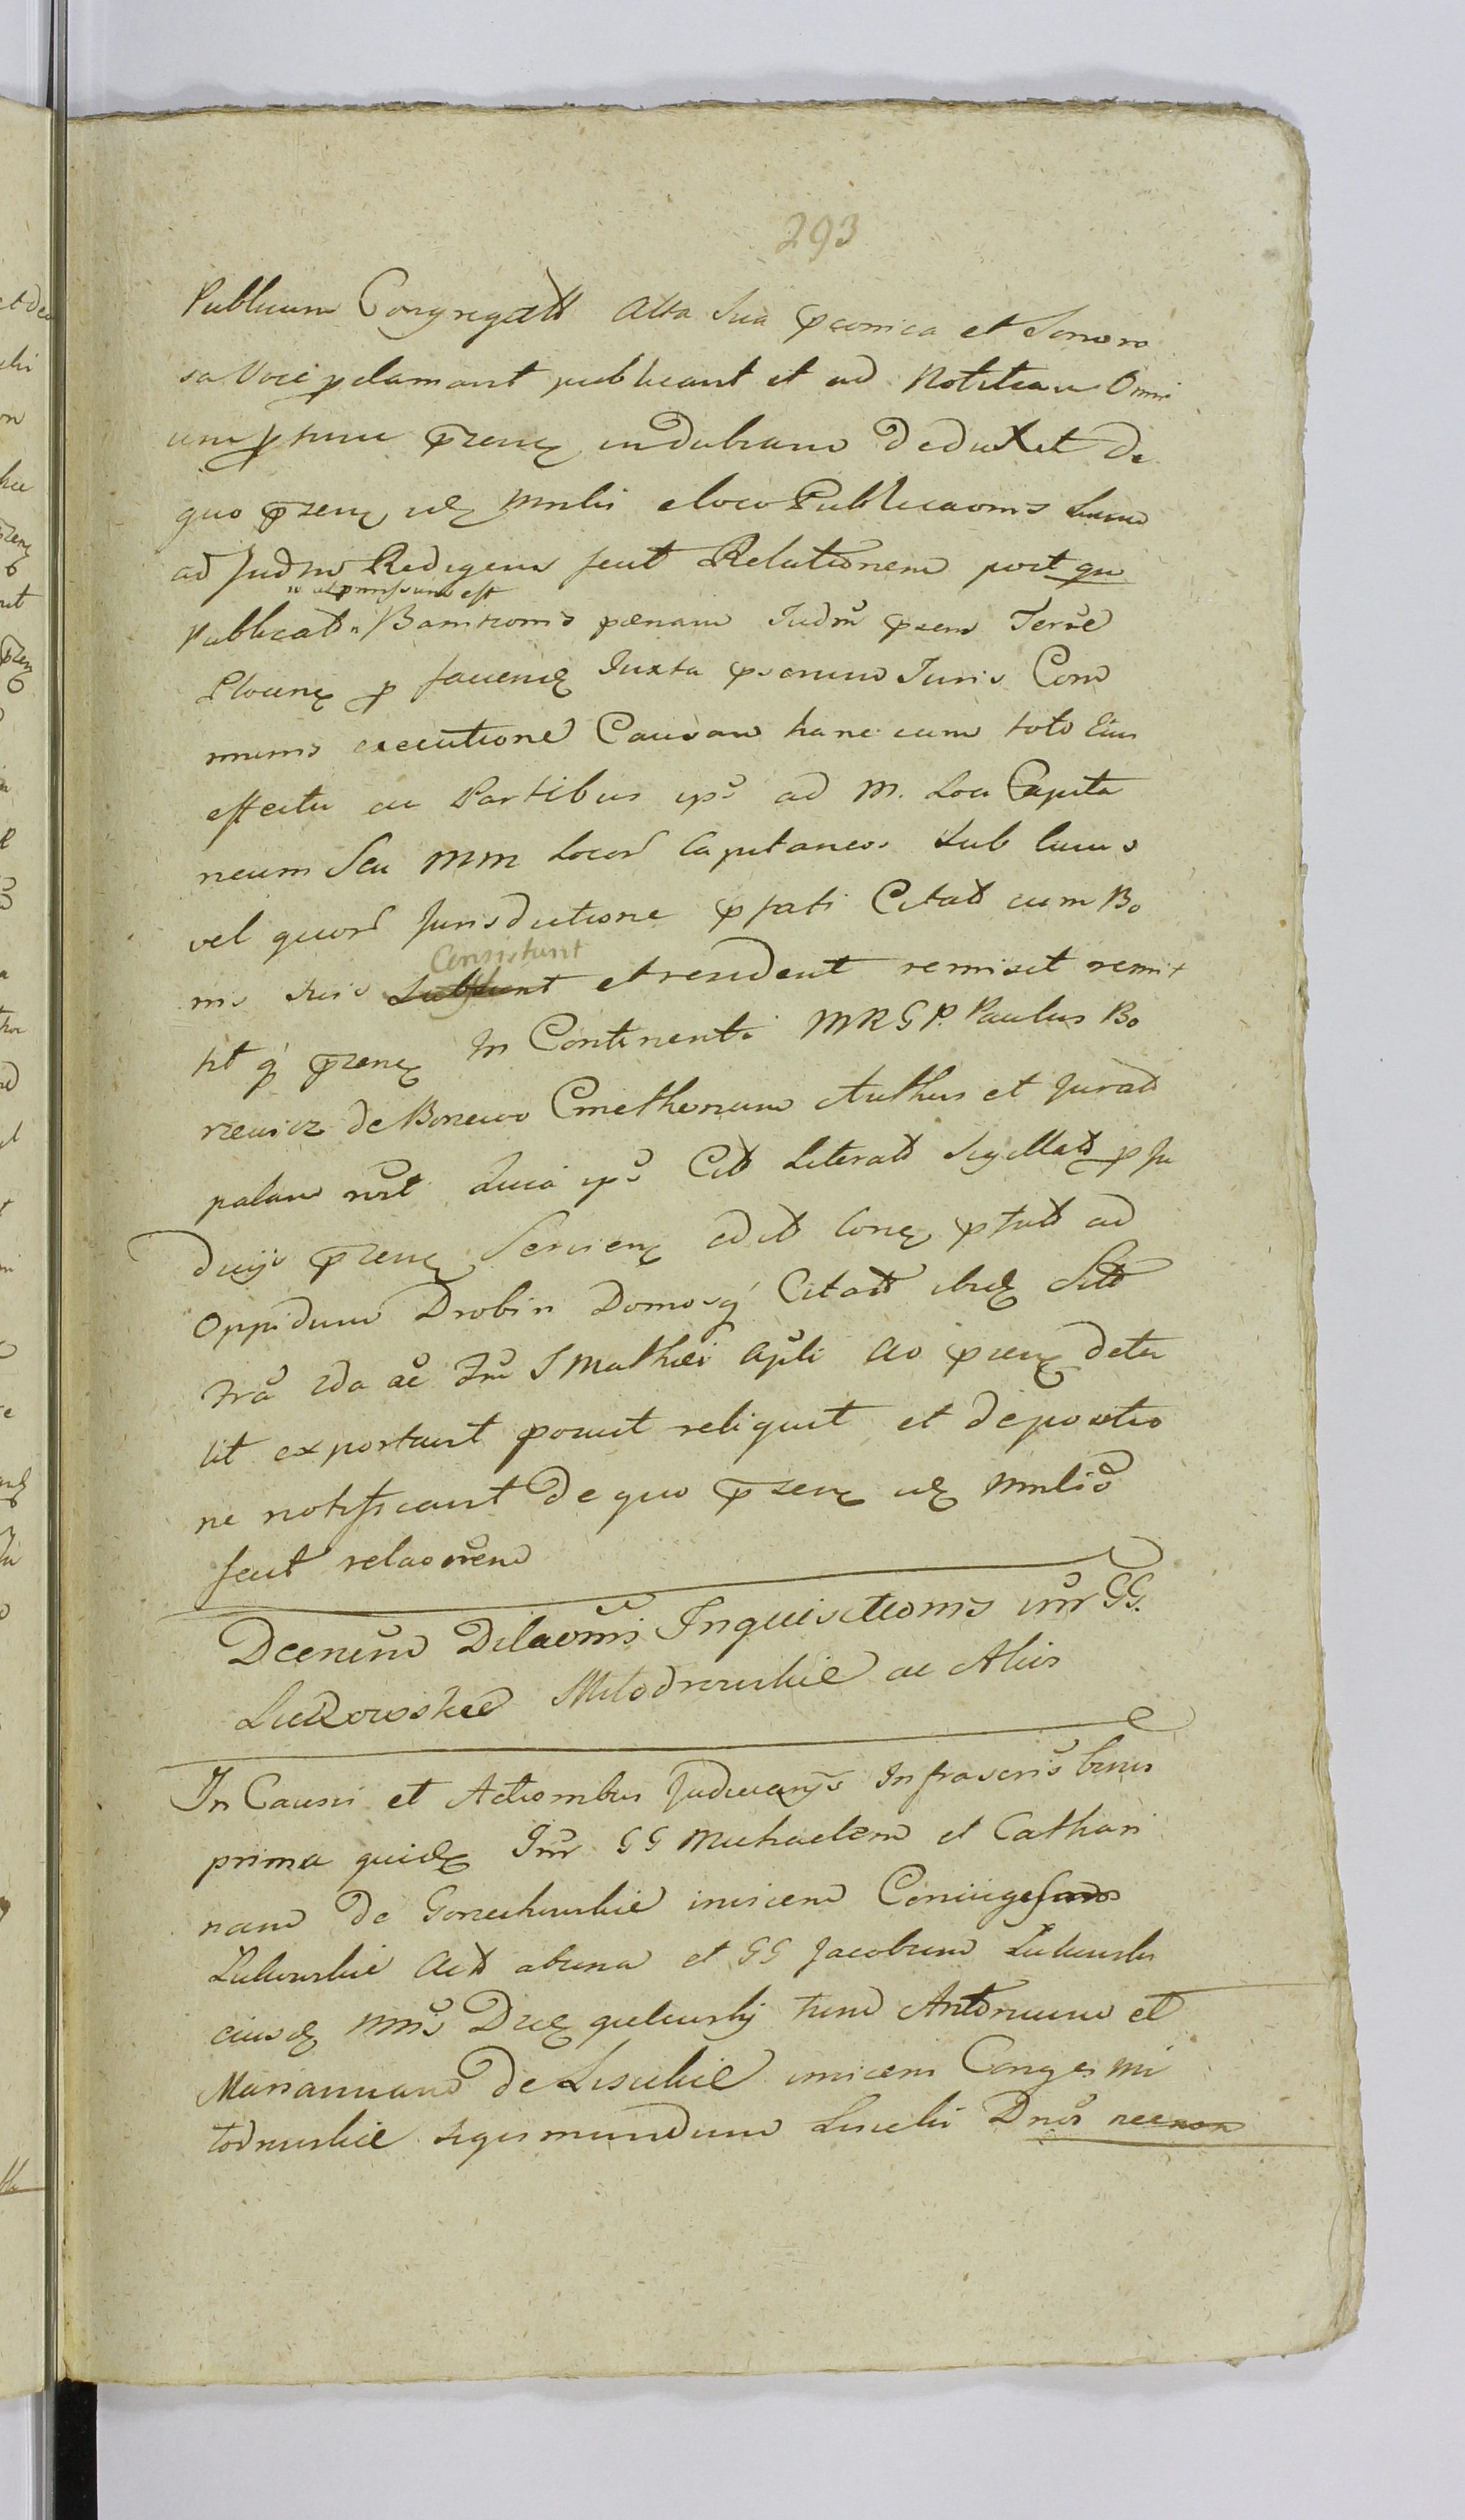 293
Publicum Congregatt Alta Sua pconica et Sonoro
sa Voce pclamavit publicavit et ad Notitiam Omni
um ptunc pzenę indubiam Deduxit De
quo pzenę idę Mnlis e loco Publicaonis
ad Judm Rediens fecit Relationem post qu
ut pmissum est
Publicatt Bannitionis pœnam Judm pzens Terre
Plocenę p facienę Juxta pscnum Juris Com
munis executione Causam hanc cum toto Eius
effectu ac Partibus ips ad M. Loci Capita
neum Seu MM Locor Capitaneos Sub cuius
vel quor Jurisdictione pfati Citatt cum Bo
Consistunt
nis suis Subsunt et resident remisit remit
tit q pzenę In Continenti MRGP. Paulus Bo
rzewicz de Borzewo Cmethonum Authus et Juratt
palam rcst Quia ips Citt Literatt Sigillatt p Ju
dicijs pzenę Servienę edit Conę ptatt ad
Oppidum Drobin Domosq Citatt ibidę Sitt
fra 2da ae Fm S Mathæi Apli Ao pzenę detu
lit exportavit posuit reliquit et depositio
ne notificavit De quo pzenę idę Mnlis
fecit relaonem
Dcenum Dilaonis Inquisitionis inr GG.
Luikowskie Mlodzowskie ac Alios
In Causis et Actionibus Judiciarijs Infrascris binis
prima quidę Inr GG Michaelem et Cathari
nam De Gorzechowskie invicem Coniuges
Lukowskie Act ab una et GG Jacobum
eiusdę Mnis tum Antonium et
Mariannam De Lisickie invicem Conges Mi
lodrowskie Sigismundum Lisicki Dnos necnon